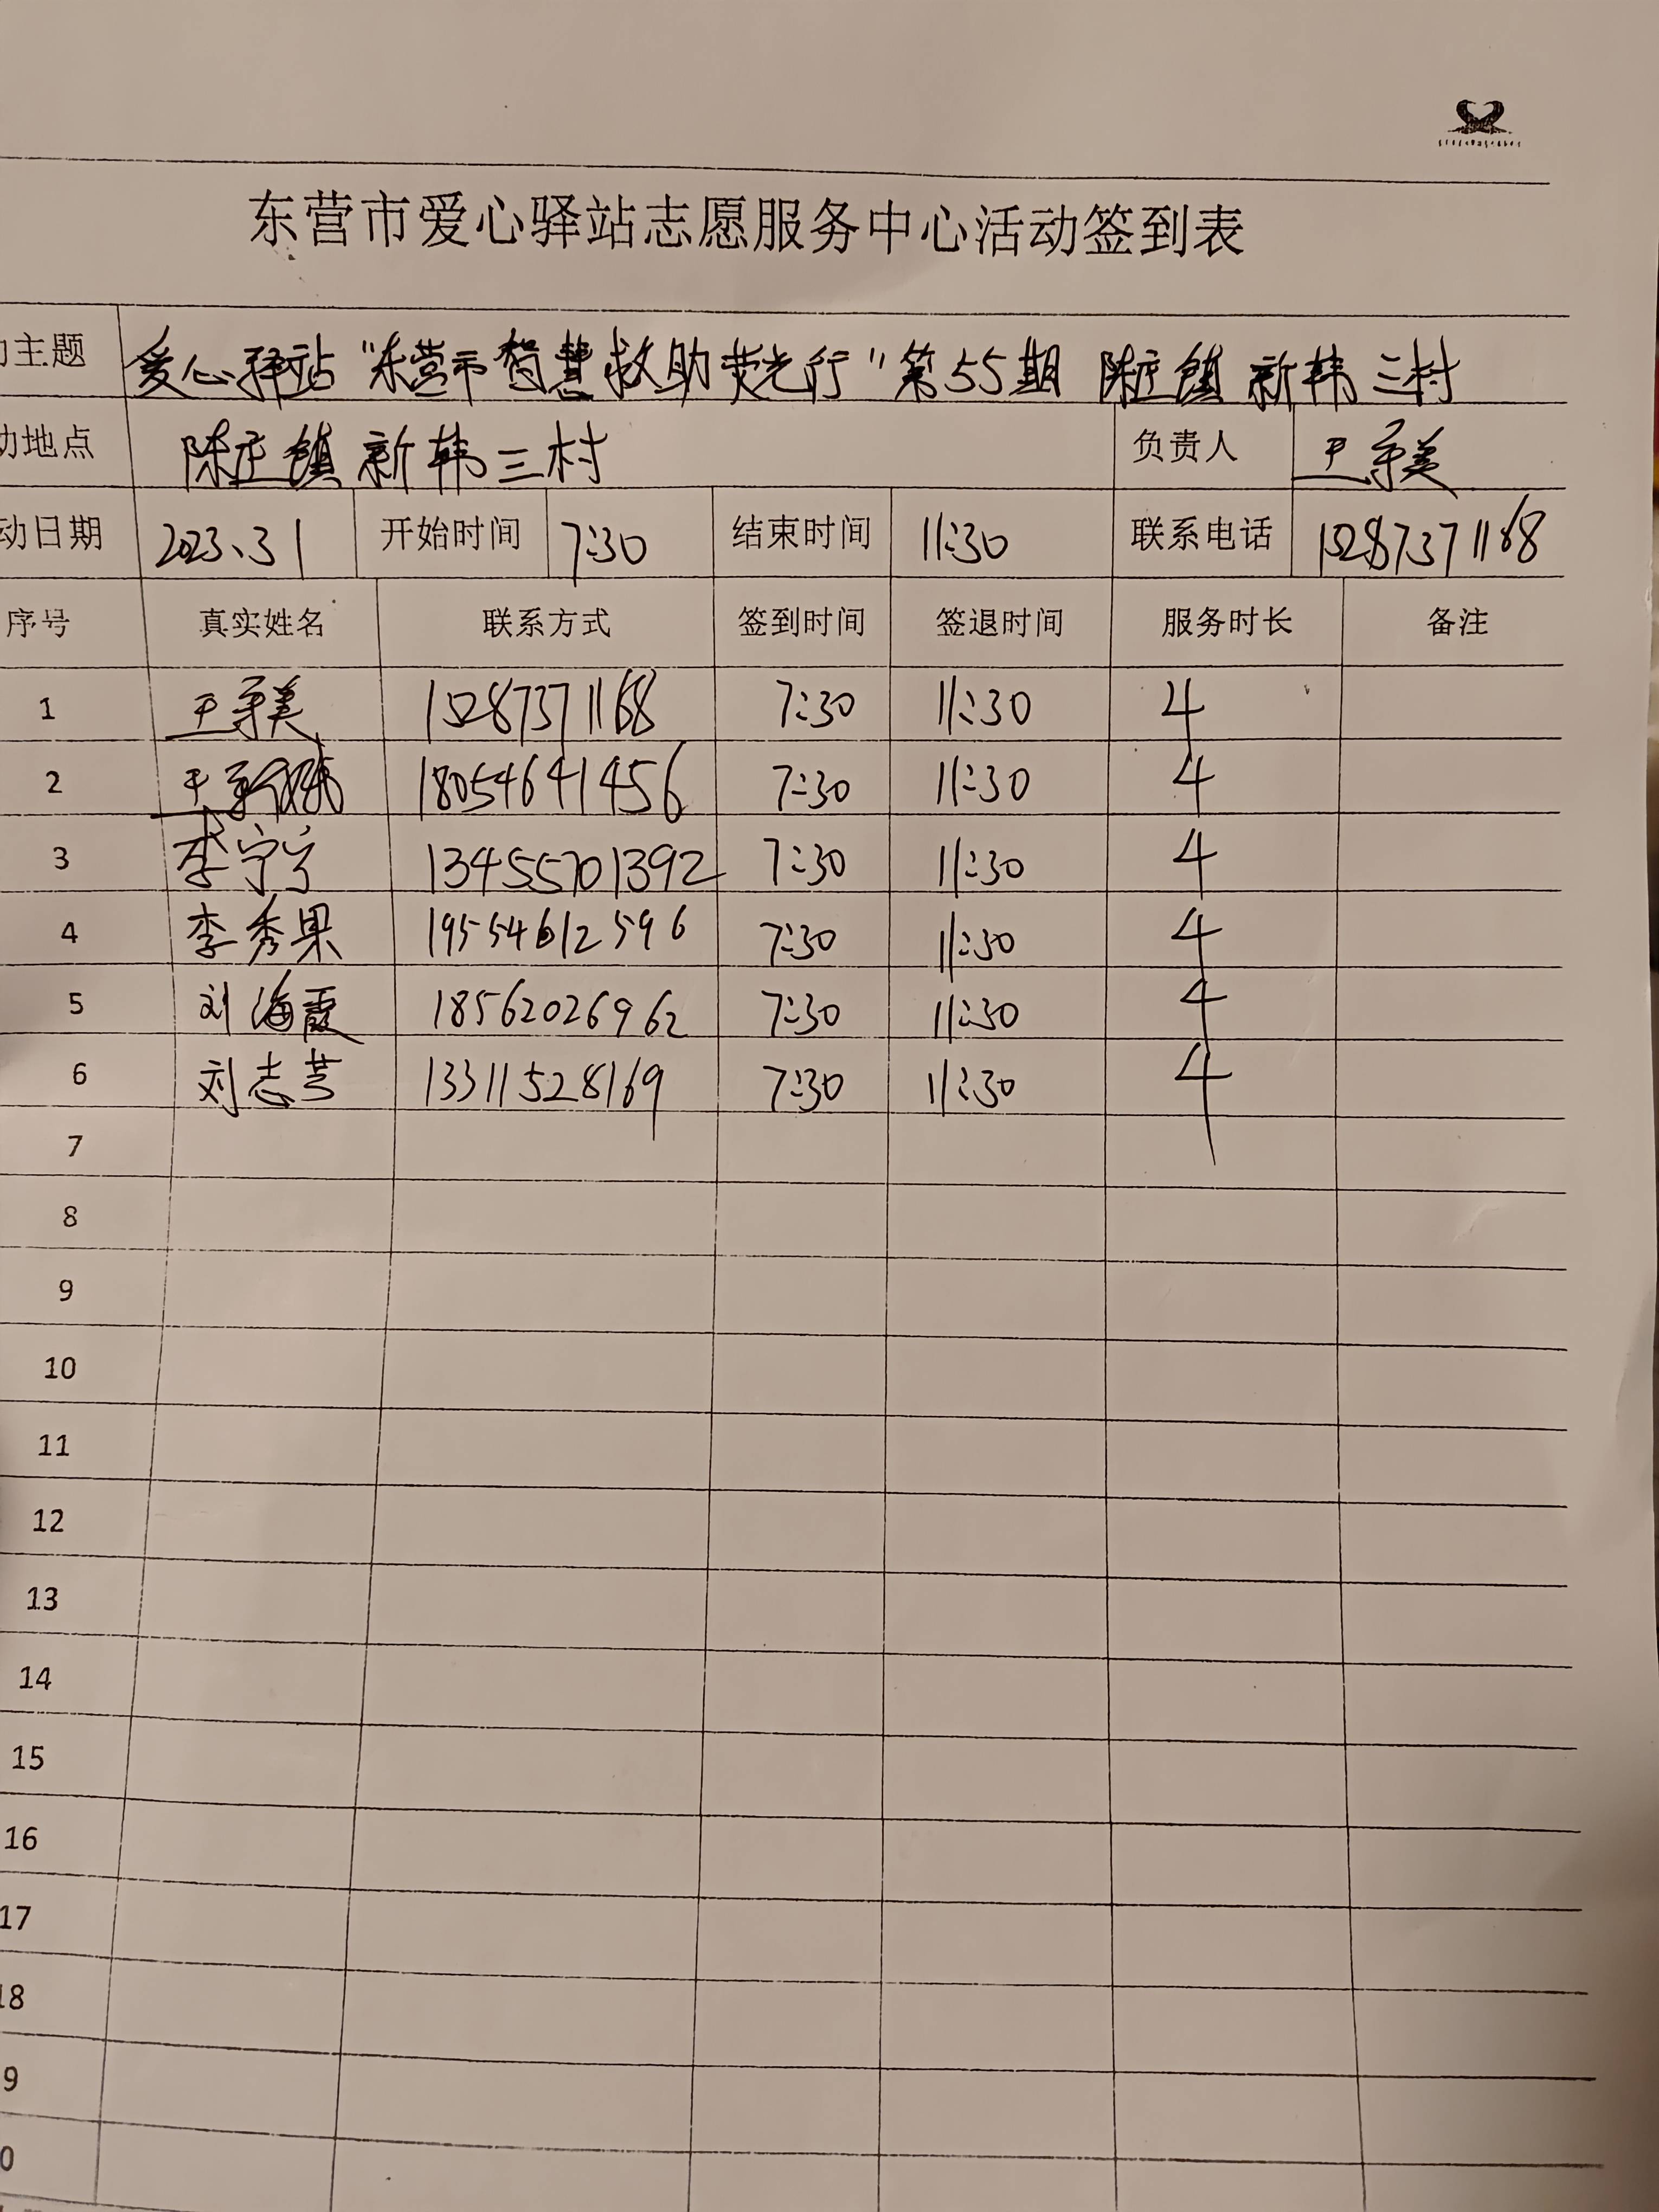 东营市爱心驿站志愿服务中心活动签到表
主题 爱心驿站"东营市智慧救助荧光行"第55期 陈庄镇 新韩三村
地点 陈庄镇 新韩三村 负责人 王
动日期 2023.31 开始时间 7:30 结束时间 11:30 联系电话 15287371168
序号 真实姓名 联系方式 签到时间 签退时间 服务时长 备注
1 王 15287371168 7:30 11:30 4
2 王 18054641456 7:30 11:30 4
3 李宁宁 13455701392 7:30 11:30 4
4 李秀果 19554612596 7:30 11:30 4
5 刘海霞 18562026962 7:30 11:30 4
6 刘志芸 13311528169 7:30 11:30 4
7
8
9
10
11
12
13
14
15
16
17
18
9
0